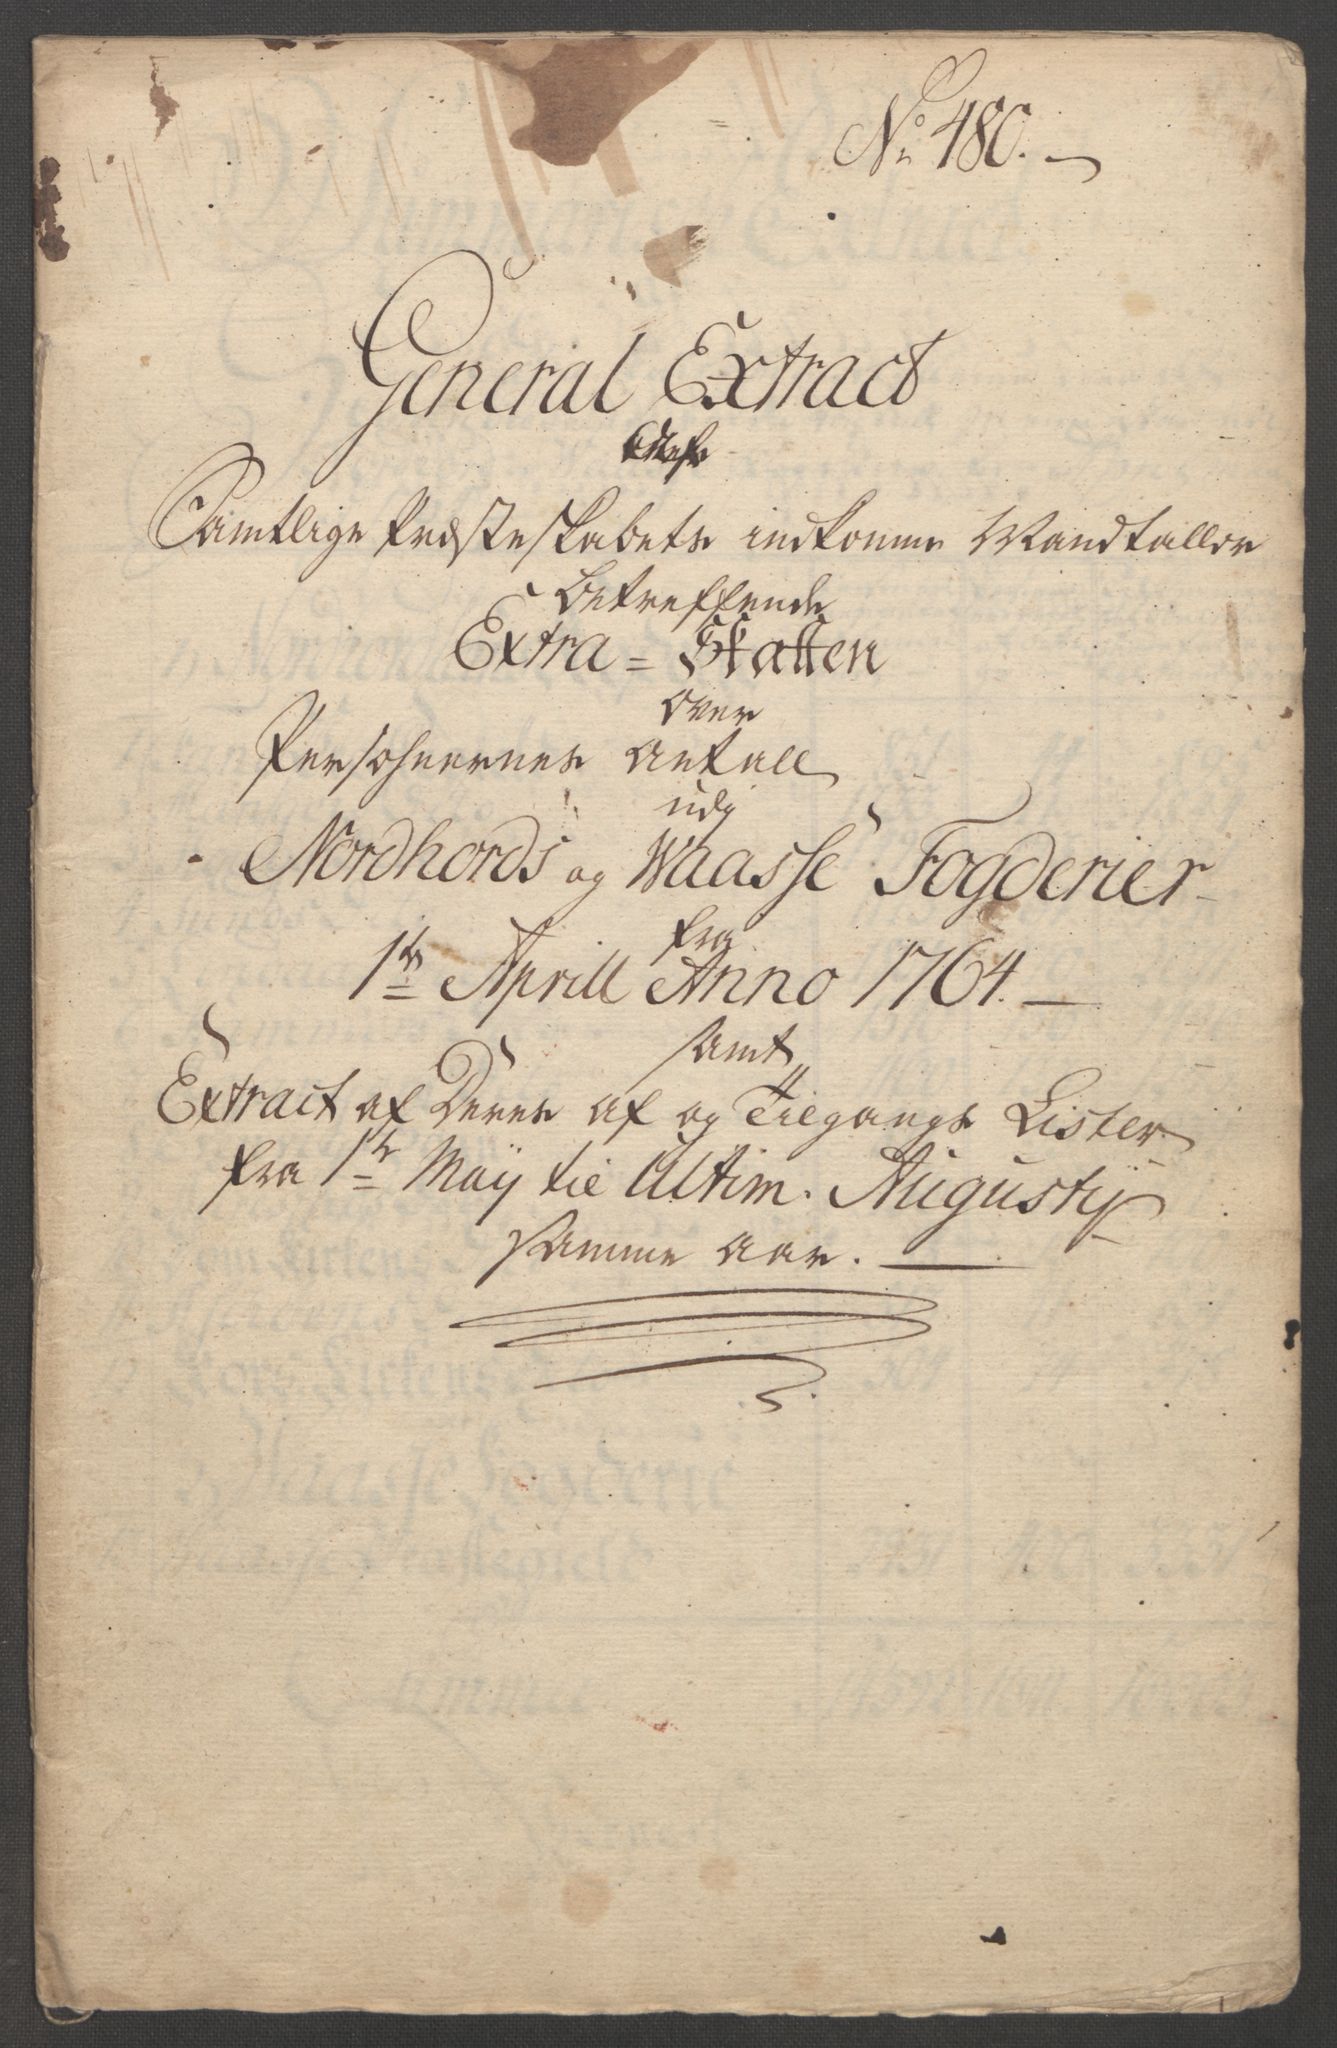 No 480.
General Extract
efter
Samtlige Præsteskabets indkomne Mandtaller
betreffende
Extra=Skatten
over
Persohnernes Antall
udj
Nordhords og Waasse Fogderier
fra
1te Aprill Anno 1764.
samt
Extract af Deres af og Tilgangs Lister
fra 1te Maÿ til Ultim. Augustÿ
samme Aar.